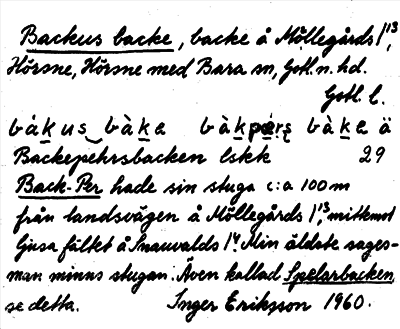 Backus backe, backe å Möllegårds 1¹³,
Hörsne, Hörsne med Bara sn, Gotl. n. hd.
Gotl. l.
bàkus bàke bàkpèrs bàke ä
Backepehrsbacken lskk 29
Back-Per hade sin stuga c:a 100 m
från landsvägen å Möllegårds 1¹³, mitt emot
Ljusa fältet å Snauvalds 1⁴. Min äldste sages-
man minns stugan. Även kallad Spelarbacken,
se detta. Inger Eriksson 1960.